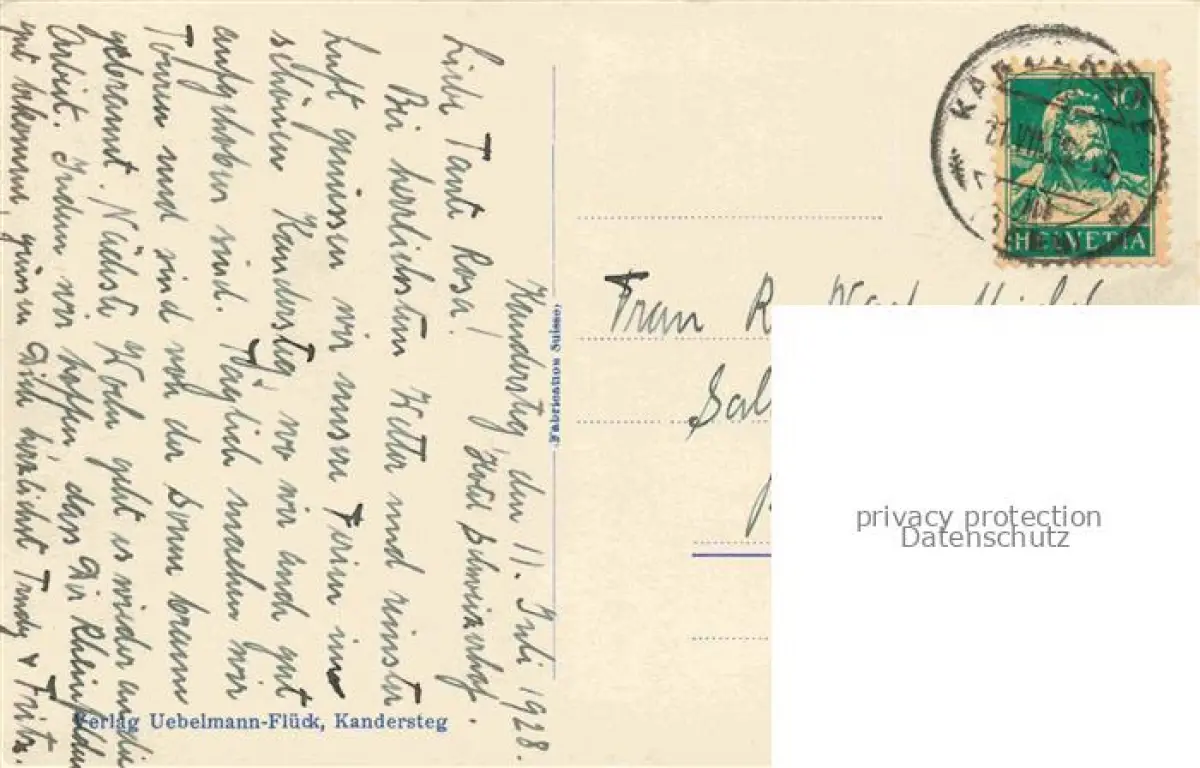 Kandersteg, den 11. Juli 1928.
Hotel Schweizerhof.
Liebe Tante Rosa!
Bei herrlichstem Wetter und reinster
Luft geniessen wir unsere Ferien im
schönen Kandersteg, wo wir auch gut
aufgehoben sind. Täglich machen wir
Touren und sind von der Sonne braun
gebrannt. Nächste Woche geht es wieder an die
Arbeit. Indem wir hoffen, dass Dir Rheinfelden
gut bekomme, grüssen Dich herzlichst Trudy & Fritz.
Verlag Uebelmann-Flück, Kandersteg
Fabrication Suisse
HELVETIA
10
Frau R.
privacy protection
Datenschutz